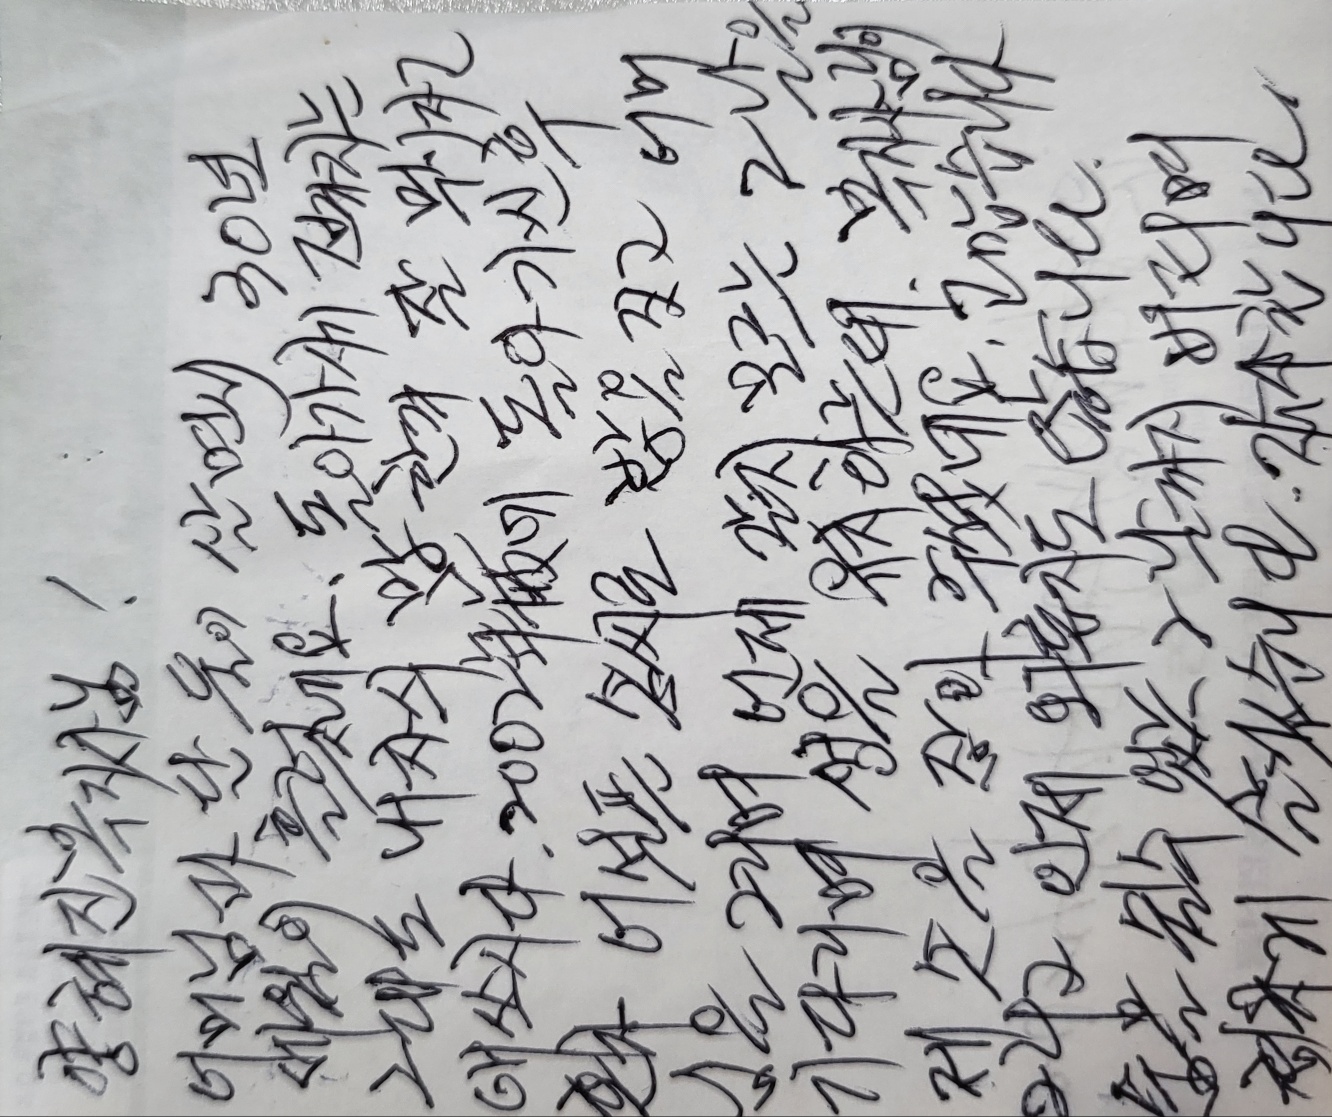 양혜진복지사님!
어머님과 단 둘이 살면서 30년
세월이 흘렀네요. 돌아가시기 전까지는
그래도 내자식 밥 한끼 잘 먹이자고
애쓰시다. 2002年 돌아가신후
혼자 어설픈 솜씨로 밥을 짓고 어머
님을 그리며 언제 갈지 모르는 그 날을
기다리며 삶을 유지하는데. 복지사님이
제 손을 잡아 주셨네요. 고맙습니다
그리고 인제 외롭지도 않습니다.
숨을 쉴수 있는 그 날까지 버티며
살겠습니다. 감사합니다.